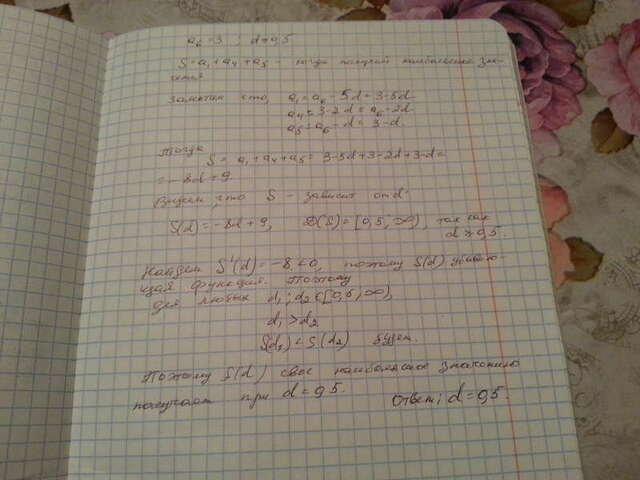 a₆ = 3 ; d ≥ 0,5
S = a₁ + a₄ + a₅ - когда получит наибольшее зна-
чения
Заметим что, a₁ = a₆ - 5d = 3-5d
a₄ = 3-2d = a₆ - 2d
a₅ = a₆ - d = 3-d
Тогда
S = a₁ + a₄ + a₅ = 3-5d+3-2d+3-d =
= -8d + 9
Видим, что S - зависит от d
S(d) = -8d + 9, D(S) = [0,5; ∞), так как
d ≥ 0,5.
Найдем S'(d) = -8 < 0, поэтому S(d) убываю-
щая функция. Поэтому
для любых d₁; d₂ ∈ [0,5; ∞),
d₁ > d₂
S(d₁) < S(d₂) будет.
Поэтому S(d) свое наибольшее значению
получает при d = 0,5.
Ответ: d = 0,5.